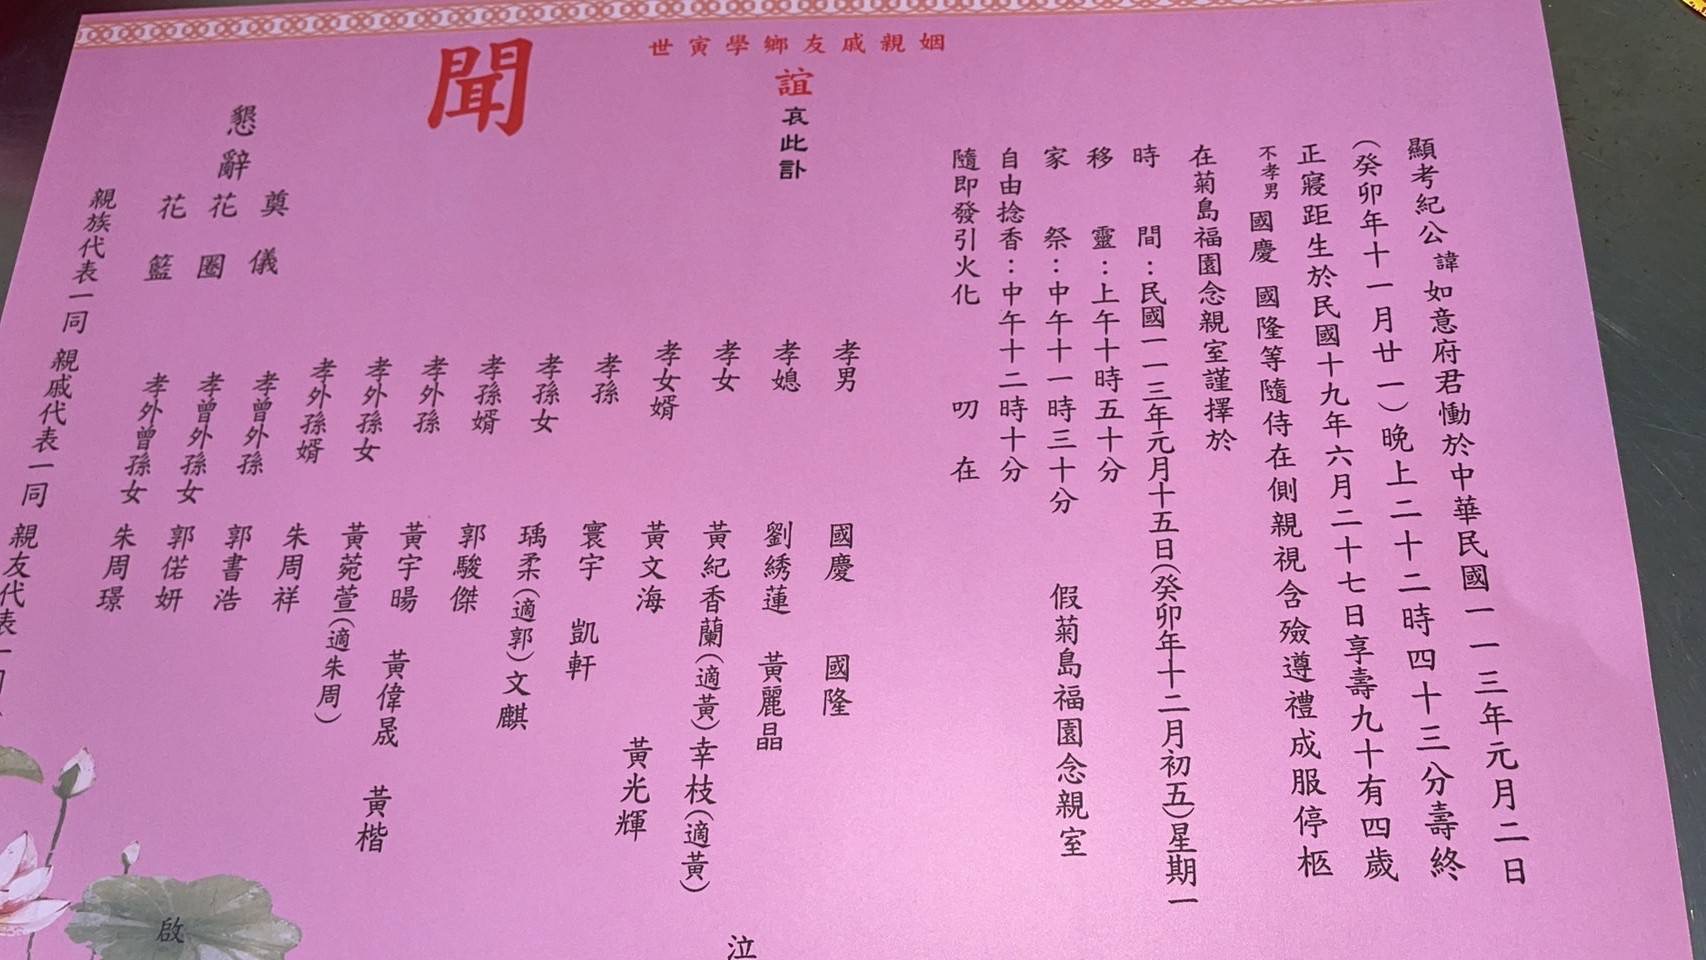 顯考紀公諱如意府君慟於中華民國一一三年元月二日
(癸卯年十一月廿一)晚上二十二時四十三分壽終
正寢距生於民國十九年六月二十七日享壽九十有四歲
不孝男 國慶 國隆等隨侍在側親視含殮遵禮成服停柩
在菊島福園念親室謹擇於
時間:民國一一三年元月十五日(癸卯年十二月初五)星期一
移靈:上午十時五十分
家祭:中午十一時三十分 假菊島福園念親室
自由捻香:中午十二時十分
隨即發引火化 叨在
姻親戚友鄉學寅世
誼哀此訃
聞
孝男 國慶 國隆
孝媳 劉綉蓮 黃麗晶
孝女 黃紀香蘭(適黃)幸枝(適黃)
孝女婿 黃文海 黃光輝
孝孫 寰宇 凱軒
孝孫女 瑀柔(適郭)文麒
孝孫婿 郭駿傑
孝外孫 黃宇暘 黃偉晟 黃楷
孝外孫女 黃菀萱(適朱周)
孝外孫婿 朱周祥
孝曾外孫 郭書浩
孝曾外孫女 郭偌妍
孝外曾孫女 朱周璟
泣
啟
懇辭 奠儀 花圈 花籃
親族代表一同
親戚代表一同
親友代表一同